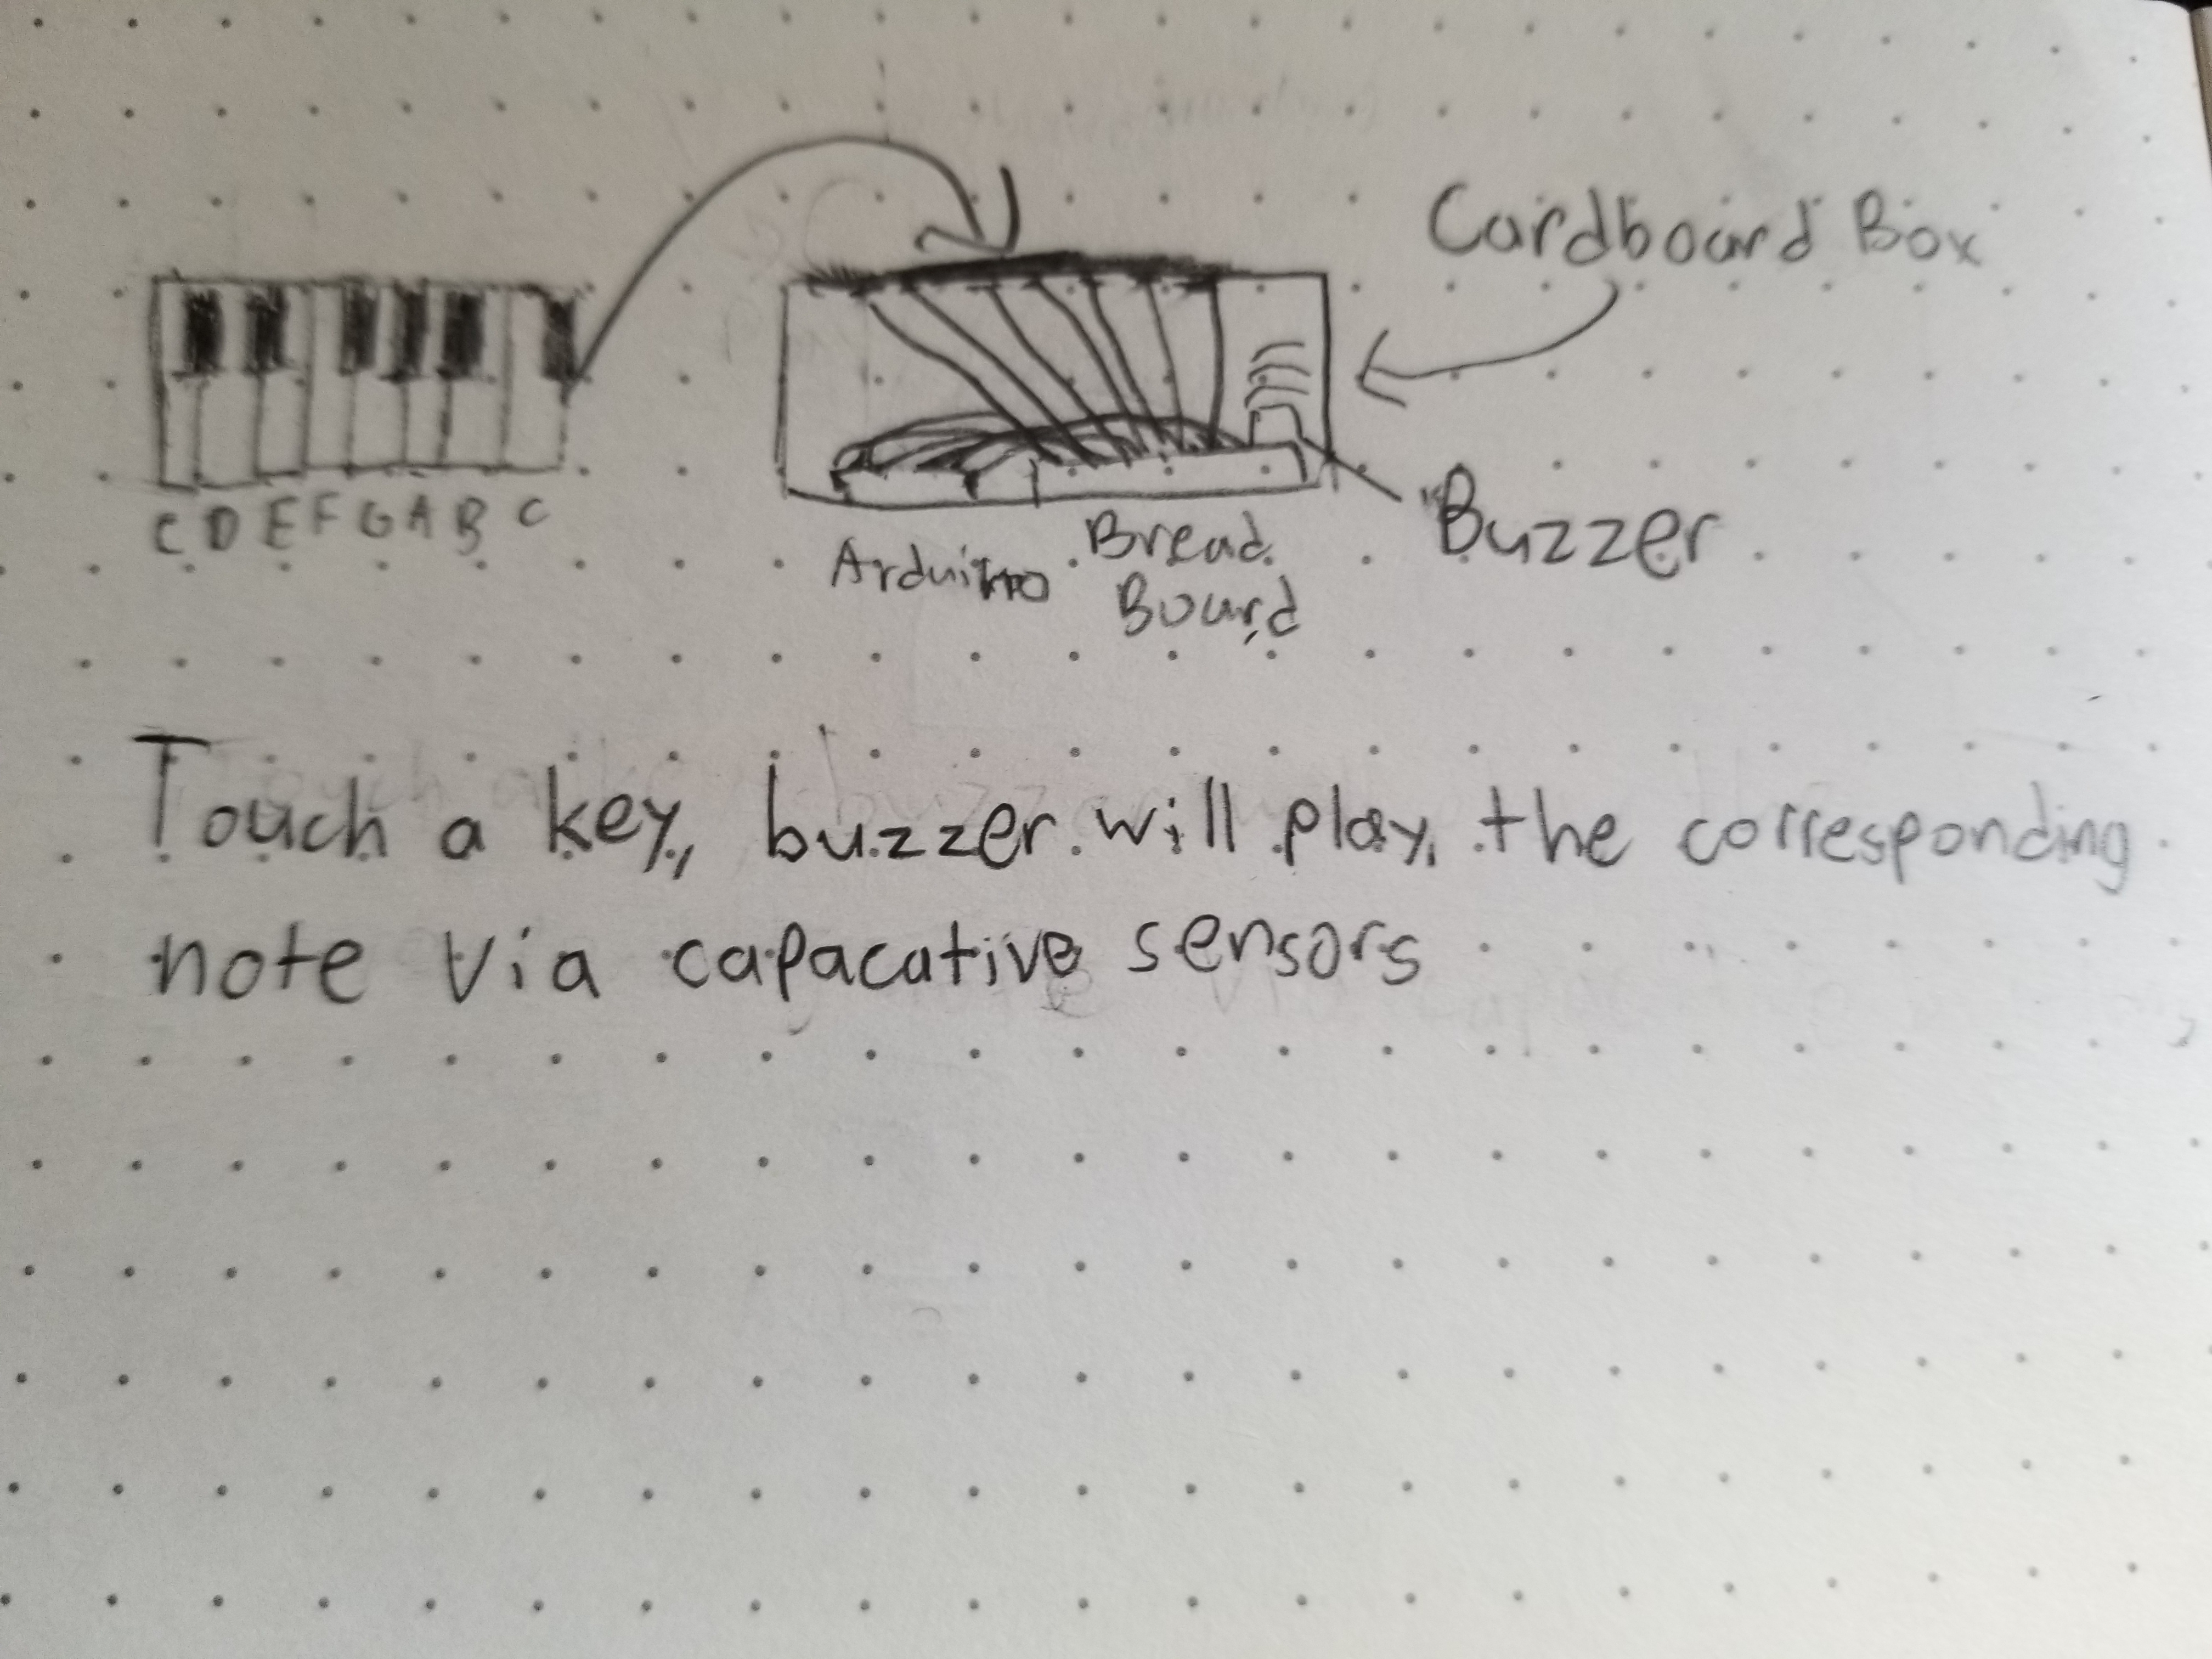 Cardboard Box
C D E F G A B C
Arduino
Bread
Board
Buzzer
Touch a key, buzzer will play the corresponding
note via capacative sensors